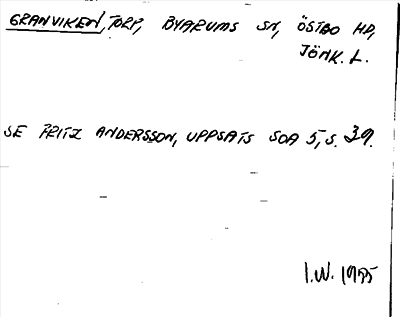 GRANVIKEN, TORP, BYARUMS SN, ÖSTBO HD,
JÖNK. L.
SE FRITZ ANDERSSON, UPPSATS SOA 5, S. 39.
I.W. 1955